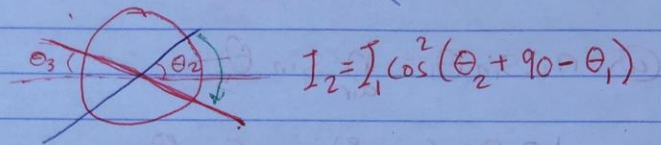 θ₃ θ₂ I₂ = I₁ cos²(θ₂ + 90 - θ₁)